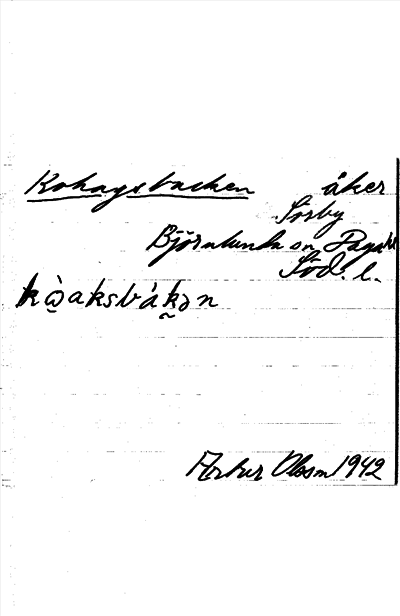 Kohagsbacken åker
Sörby
Björnlunda sn Daga hd
Söd. l.
kὼaksbákən
Artur Olsson 1942